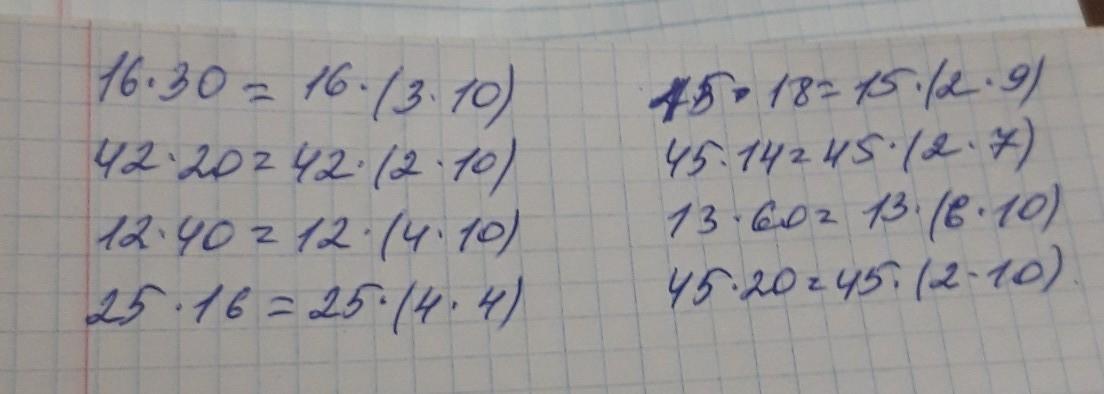 16·30 = 16·(3·10)
42·20 = 42·(2·10)
12·40 = 12·(4·10)
25·16 = 25·(4·4)
15·18 = 15·(2·9)
45·14 = 45·(2·7)
13·60 = 13·(6·10)
45·20 = 45·(2·10)